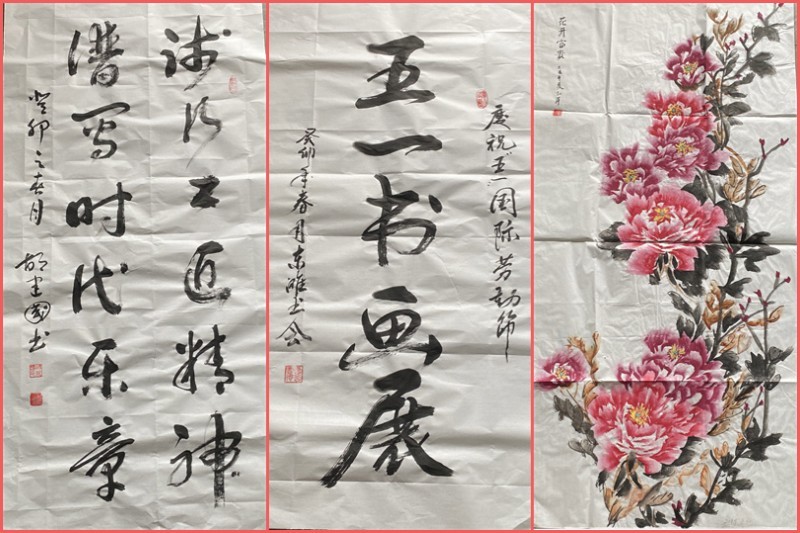 践行工匠精神
谱写时代乐章
癸卯之春月
胡建国书
庆祝五一国际劳动节
五一书画展
癸卯年春月东书会
花开富贵